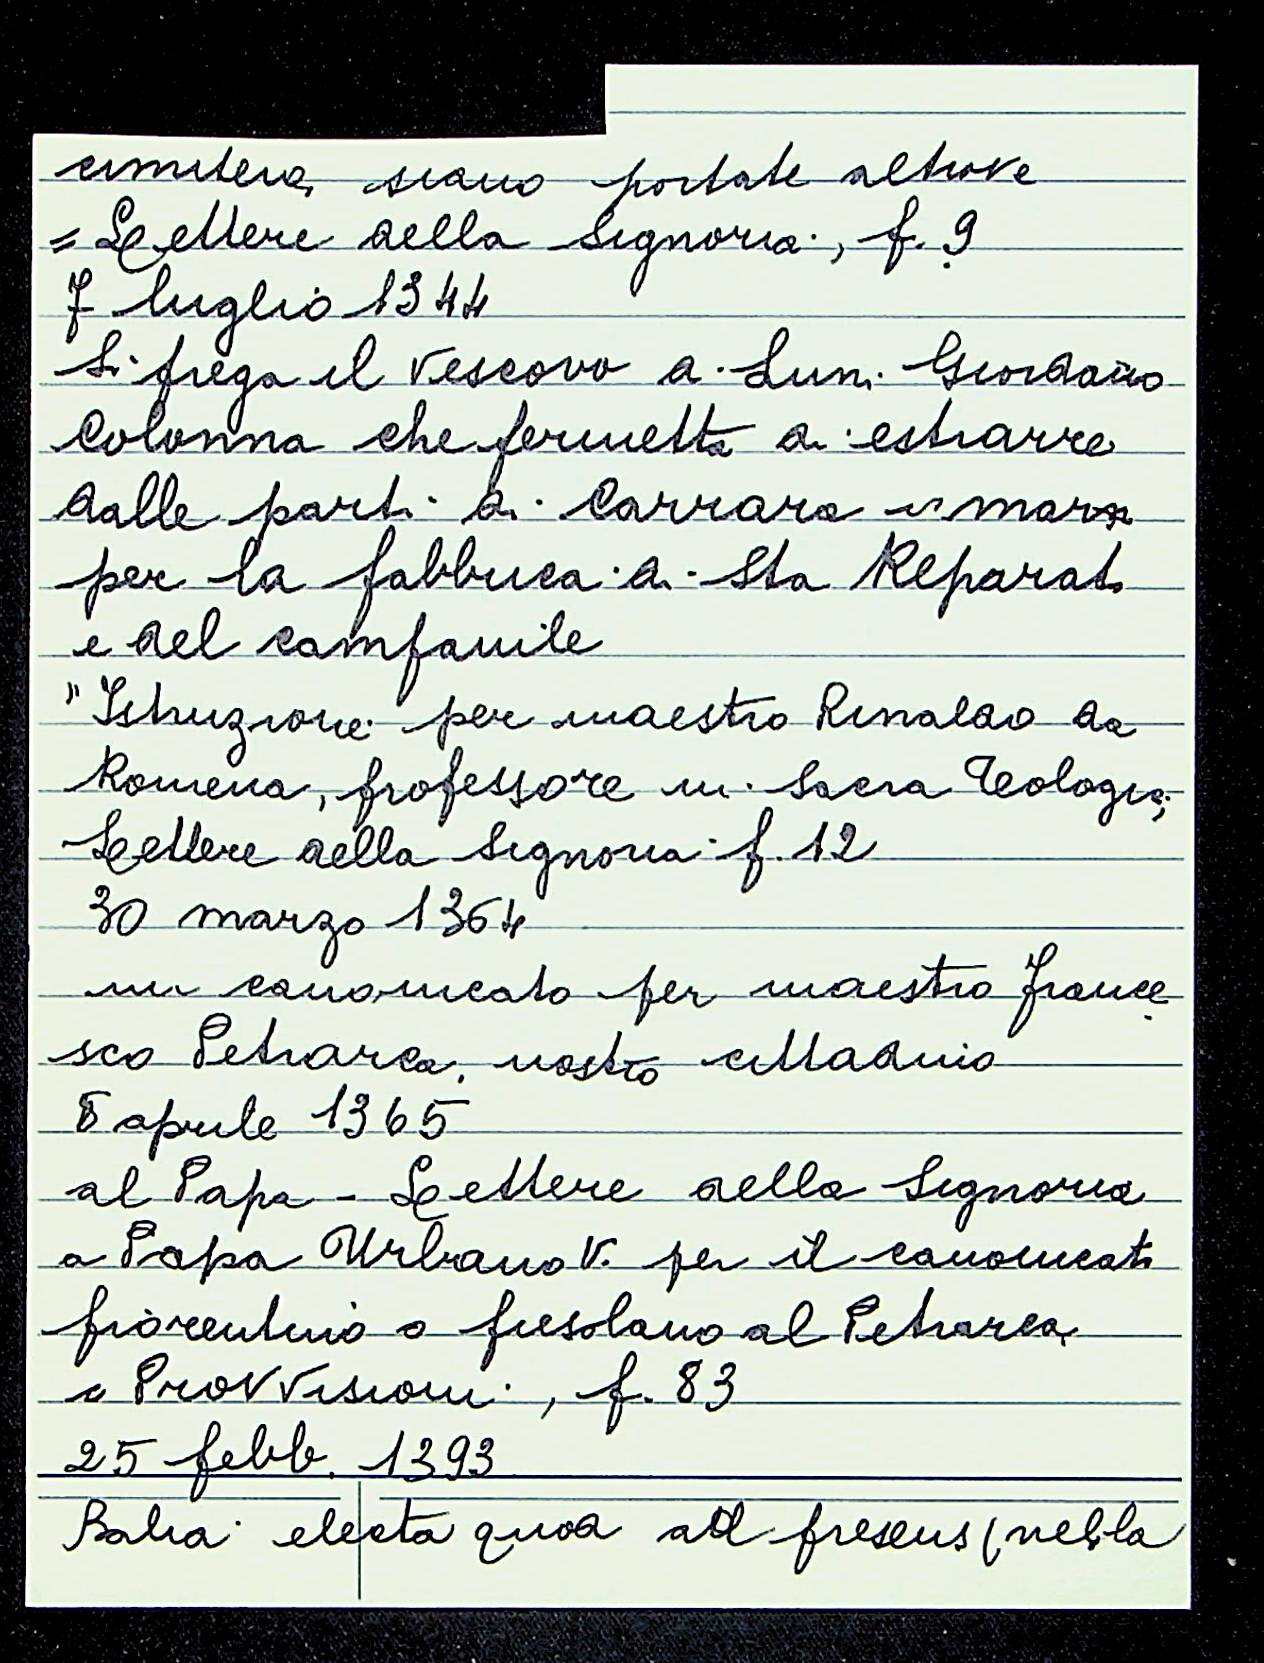 cimitero, siano portate altrove
= Lettere della Signoria, f. 9
7 luglio 1344
Si prega il vescovo di Luni Giordano
Colonna che permetta di estrarre
dalle parti di Carrara i marmi
per la fabbrica di Sta Reparata
e del campanile
" Istruzione per maestro Rinaldo da
Romena, professore in Sacra Teologia,
Lettere della Signoria f. 12
30 marzo 1364
un canonicato per maestro France
sco Petrarca, nostro cittadino
8 aprile 1365
al Papa - Lettere della Signoria
a Papa Urbano V. per il canonicato
fiorentino o fiesolano al Petrarca
= Provvisioni, f. 83
25 febb. 1393
Balia electa quod ad presens (nella